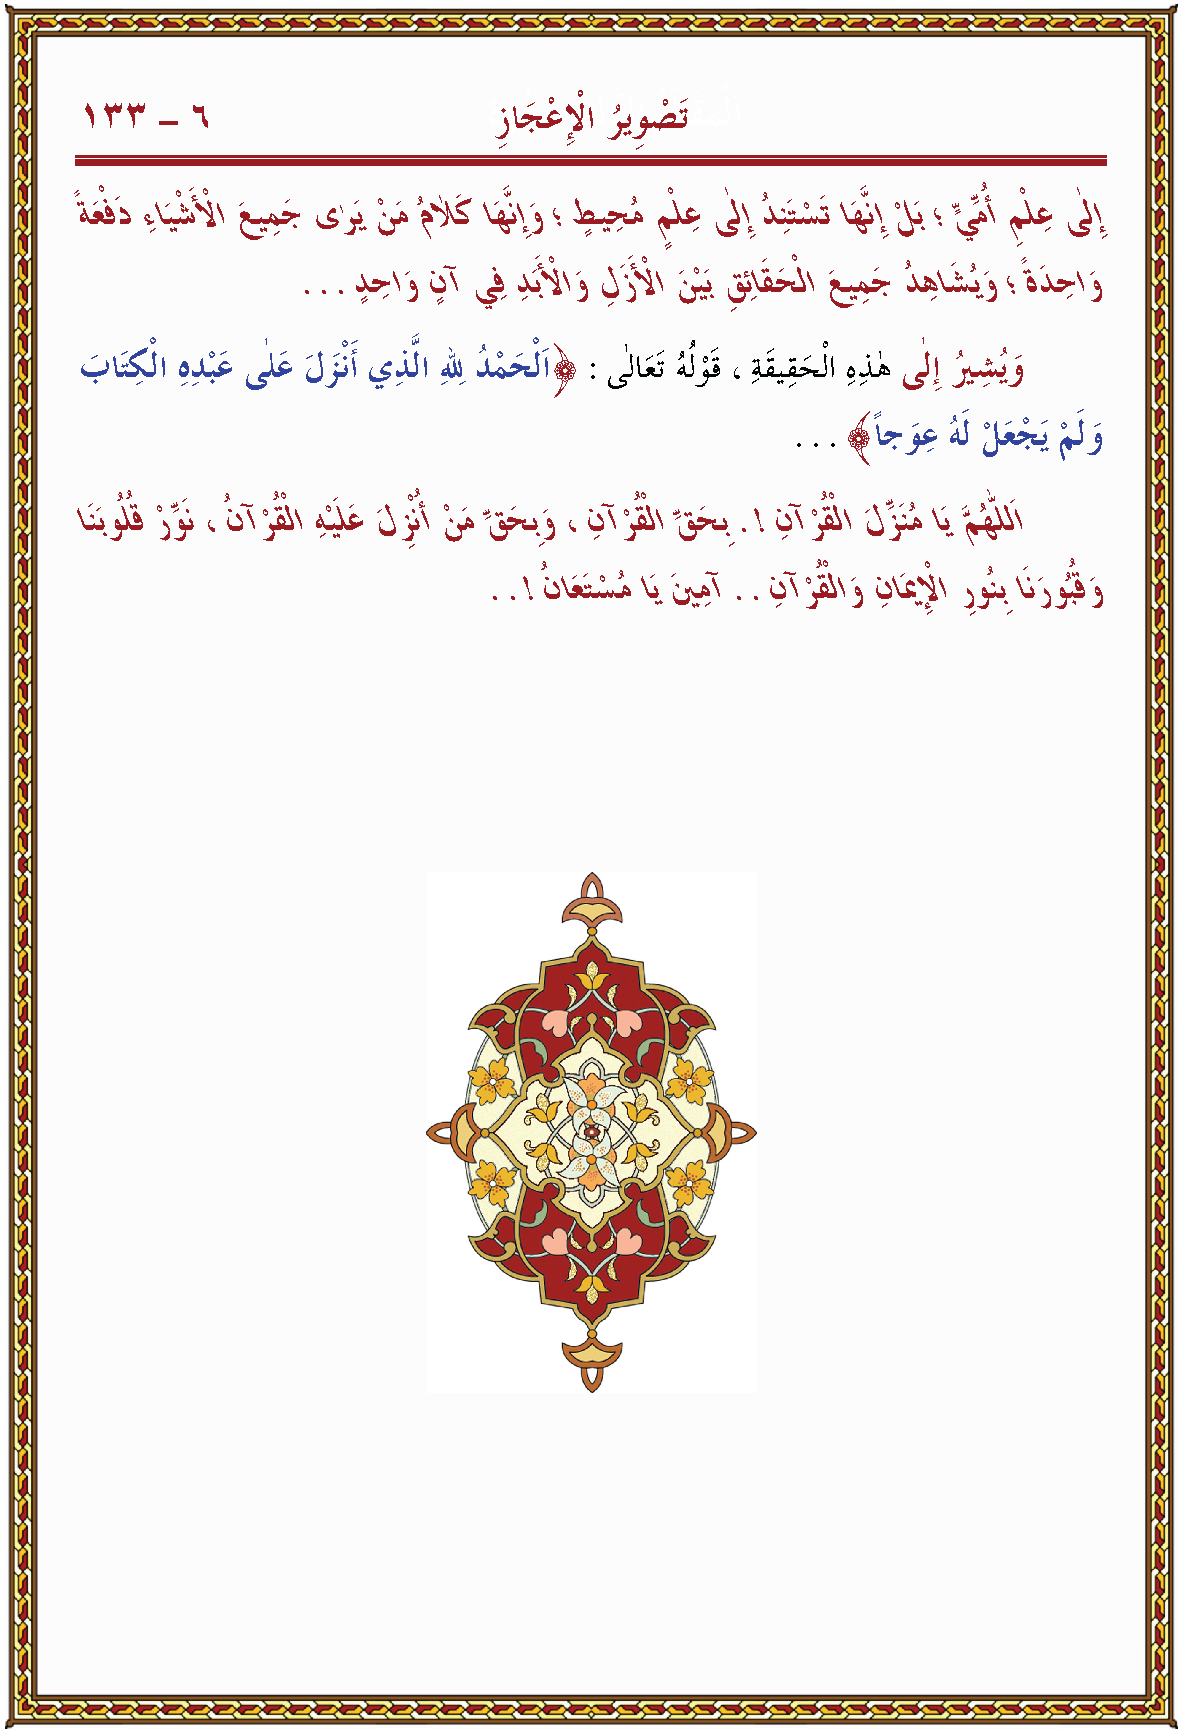 تَصْوِيرُ الْإِعْجَازِ ٦ ـ ١٣٣
إِلٰى عِلْمِ أُمِّيٍّ ؛ بَلْ إِنَّهَا تَسْتَنِدُ إِلٰى عِلْمٍ مُحِيطٍ ؛ وَإِنَّهَا كَلَامُ مَنْ يَرٰى جَمِيعَ الْأَشْيَاءِ دَفْعَةً
وَاحِدَةً ؛ وَيُشَاهِدُ جَمِيعَ الْحَقَائِقِ بَيْنَ الْأَزَلِ وَالْأَبَدِ فِي آنٍ وَاحِدٍ . . .
وَيُشِيرُ إِلٰى هٰذِهِ الْحَقِيقَةِ ، قَوْلُهُ تَعَالٰى : ﴿اَلْحَمْدُ لِلّٰهِ الَّذِي أَنْزَلَ عَلٰى عَبْدِهِ الْكِتَابَ
وَلَمْ يَجْعَلْ لَهُ عِوَجاً﴾ . . .
اَللّٰهُمَّ يَا مُنَزِّلَ الْقُرْآنِ !. بِحَقِّ الْقُرْآنِ ، وَبِحَقِّ مَنْ أُنْزِلَ عَلَيْهِ الْقُرْآنُ ، نَوِّرْ قُلُوبَنَا
وَقُبُورَنَا بِنُورِ الْإِيمَانِ وَالْقُرْآنِ . . آمِينَ يَا مُسْتَعَانُ ! . .